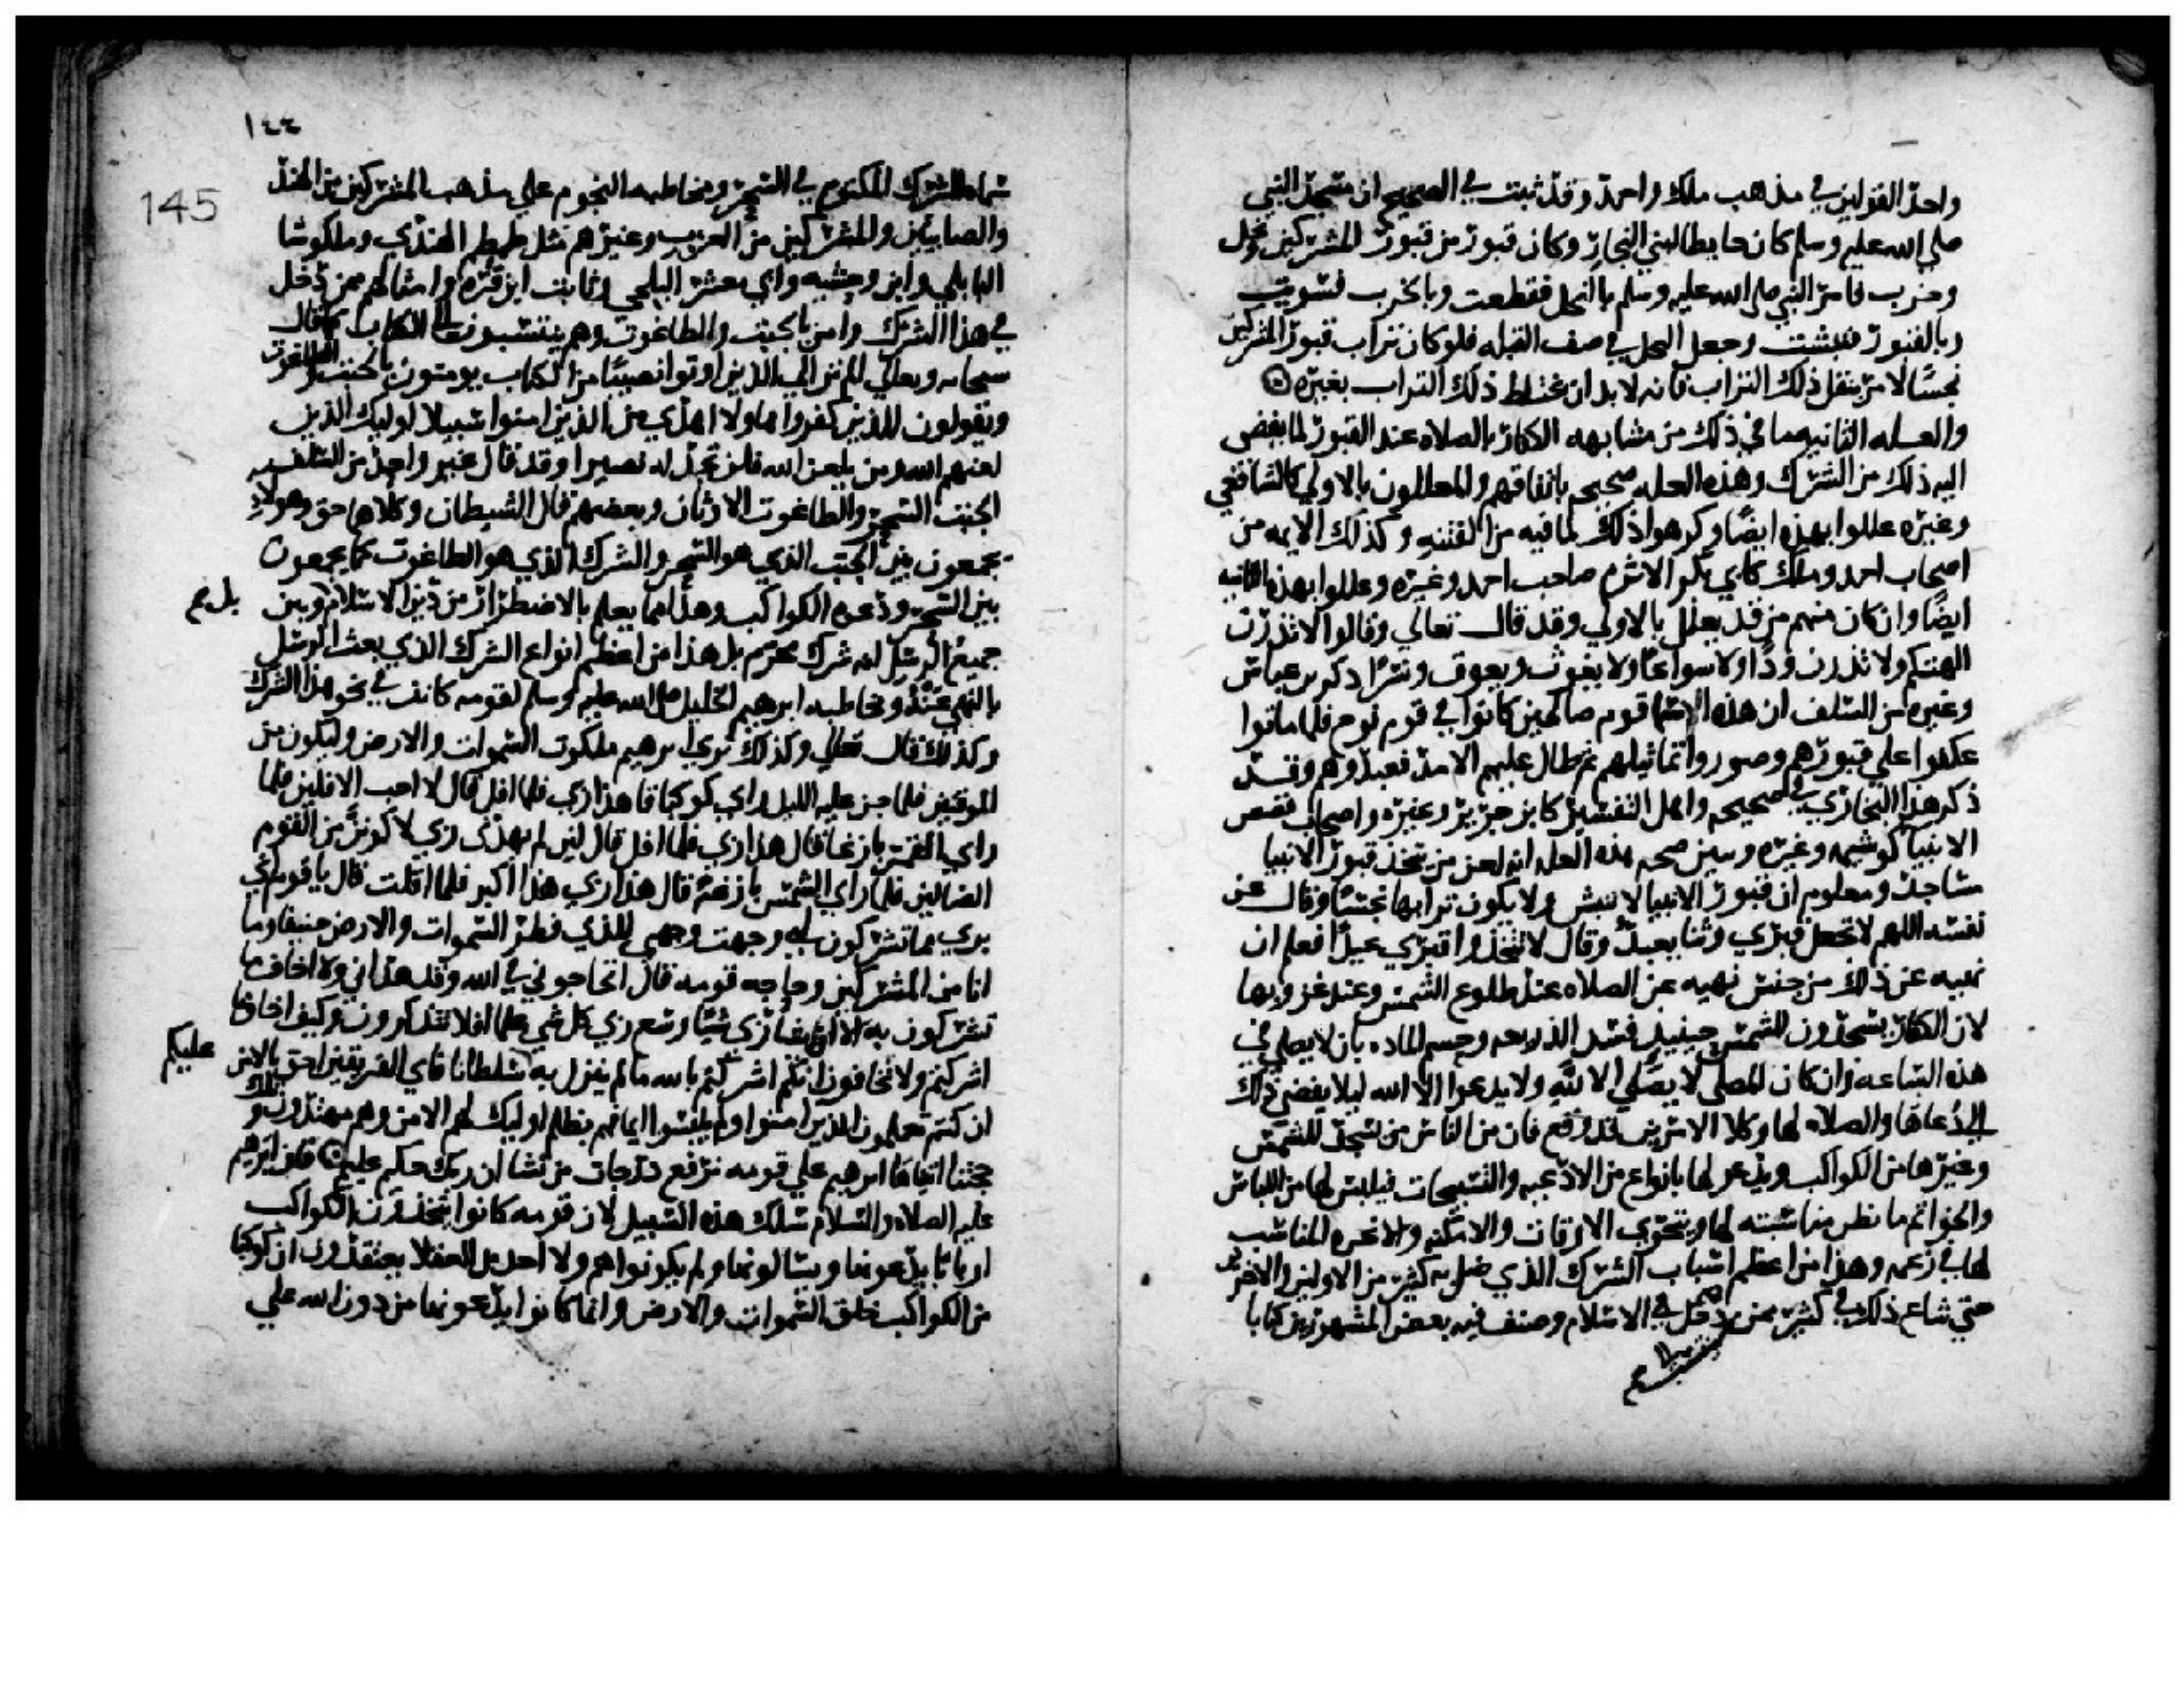 واحد القولين في مذهب ملك واحمد وقد ثبت في الصحيح ان مسجد النبي
صلي الله عليه وسلم كان حايطا لبني النجار وكان قبور من قبور المشركين ونخل
وخرب فامر النبي صلي الله عليه وسلم بالنخل فقطعت وبالخرب فسويت
وبالقبور فنبشت وجعل النخل في صف القبله فلو كان تراب قبور المشركين
نجسًا لامر بنقل ذلك التراب فانه لا بد ان يختلط ذلك التراب بغيره
والعله الثانيه ما في ذلك من مشابهه الكفار بالصلاه عند القبور لما يفضي
اليه ذلك من الشرك وهذه العله صحيحه باتفاقهم والمعللون بالاولي كالشافعي
وغيره عللوا بهذه ايضًا وكرهوا ذلك لما فيه من الفتنه وكذلك الايمه من
اصحاب احمد وملك كابي بكر الاثرم صاحب احمد وغيره وعللوا بهذه الثانيه
ايضًا وان كان منهم من قد يعلل بالاولي وقد قال تعالي وقالوا لا تذرن
الهتكم ولا تذرن ودًا ولا سواعًا ولا يغوث ويعوق ونسرًا ذكر بن عباس
وغيره من السلف ان هذه الاسما قوم صالحين كانوا في قوم نوح فلما ماتوا
عكفوا علي قبورهم وصوروا تماثيلهم ثم طال عليهم الامد فعبدوهم وقد
ذكر هذا البخاري في صحيحه واهل التفسير كابن جرير وغيره واصحاب قصص
الانبيا كوثيمه وغيره ويبين صحه هذه العله انه لعن من يتخذ قبور الانبيا
مساجد ومعلوم ان قبور الانبيا لا تنبش ولا يكون ترابها نجسًا وقال عن
نفسه اللهم لا تجعل قبري وثنا يعبد وقال لا تتخذوا قبري عيدًا فعلم ان
نهيه عن ذلك من جنس نهيه عن الصلاه عند طلوع الشمس وعند غروبها
لان الكفار يسجدون للشمس حينيذ فسد الذريعه وحسم الماده بان لا يصلي في
هذه الساعه وان كان المصلي لا يصلي الا لله ولا يدعوا الا الله ليلا يفضي ذلك
الي دعاها والصلاه لها وكلا الامرين قد وقع فان من الناس من يسجد للشمس
وغيرها من الكواكب ويدعو لها بانواع من الادعيه والتسبيحات فيلبس لها من اللباس
والخواتم ما يظن مناسبته لها ويتحري الاوقات والامكنه والابخره المناسبه
لها في زعمه وهذا من اعظم اسباب الشرك الذي ضل به كثير من الاولين والاخرين
حتي شاع ذلك في كثير ممن دخل في الاسلام وصنف فيه بعض المشهورين كتابا
١٤٤
145
سماه السر المكتوم في السحر ومخاطبه النجوم علي مذهب المشركين من الهند
والصابيين والمشركين من العرب وغيرهم مثل طمطم الهندي وملكوشا
البابلي وابن وحشيه وابي معشر البلخي وثابت ابن قره وامثالهم ممن دخل
في هذا الشرك وامن بالجبت والطاغوت وهم ينتسبون الي الكتاب كما قال
سبحانه وتعالي الم تر الي الذين اوتوا نصيبًا من الكتاب يومنون بالجبت والطاغوت
ويقولون للذين كفروا هاولا اهدي من الذين امنوا سبيلا اوليك الذين
لعنهم الله ومن يلعن الله فلن تجد له نصيرا وقد قال غير واحد من السلف
الجبت السحر والطاغوت الاوثان وبعضهم قال الشيطان وكلاهما حق وهولاء
يجمعون بين الجبت الذي هو السحر والشرك الذي هو الطاغوت كما يجمعون
بين السحر ودعوه الكواكب وهذا مما يعلم بالاضطرار من دين الاسلام وبين
جميع الرسل انه شرك محرم بل هذا من اعظم انواع الشرك الذي بعث الرسل
بالنهي عنه ومخاطبه ابرهيم الخليل صلي الله عليه وسلم لقومه كانت في نحو هذا الشرك
وكذلك قال تعالي وكذلك نري ابرهيم ملكوت السموات والارض وليكون من
الموقنين فلما جن عليه الليل راي كوكبا قال هذا ربي فلما افل قال لا احب الافلين فلما
راي القمر بازغا قال هذا ربي فلما افل قال لين لم يهدني ربي لاكونن من القوم
الضالين فلما راي الشمس بازغه قال هذا ربي هذا اكبر فلما افلت قال يا قوم اني
بري مما تشركون اني وجهت وجهي للذي فطر السموات والارض حنيفا وما
انا من المشركين وحاجه قومه قال اتحاجوني في الله وقد هداني ولا اخاف ما
تشركون به الا ان يشا ربي شيًا وسع ربي كل شي علما افلا تتذكرون وكيف اخاف ما
اشركتم ولا تخافون انكم اشركتم بالله ما لم ينزل به عليكم سلطانا فاي الفريقين احق بالامن
ان كنتم تعلمون الذين امنوا ولم يلبسوا ايمانهم بظلم اوليك لهم الامن وهم مهتدون وتلك
حجتنا اتيناها ابرهيم علي قومه نرفع درجات من نشا ان ربك حكيم عليم فان ابرهيم
عليه الصلاه والسلام سلك هذه السبيل لان قومه كانوا يتخذون الكواكب
اربابا يدعونها ويسالونها ولم يكونوا هم ولا احد من العقلا يعتقدون ان كوكبا
من الكواكب خلق السموات والارض وانما كانوا يدعونها من دون الله علي